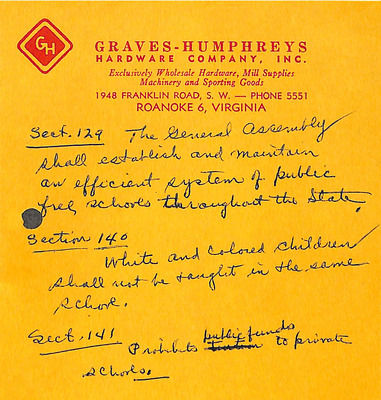 GH
GRAVES-HUMPHREYS
HARDWARE COMPANY, INC.
Exclusively Wholesale Hardware, Mill Supplies
Machinery and Sporting Goods
1948 FRANKLIN ROAD, S. W. — PHONE 5551
ROANOKE 6, VIRGINIA
Sect. 129 The General Assembly
shall establish and maintain
an efficient system of public
free schools throughout the State.
Section 140
White and Colored Children
shall not be taught in the same
school.
Sect. 141
public funds
Prohibits tuition to private
schools.